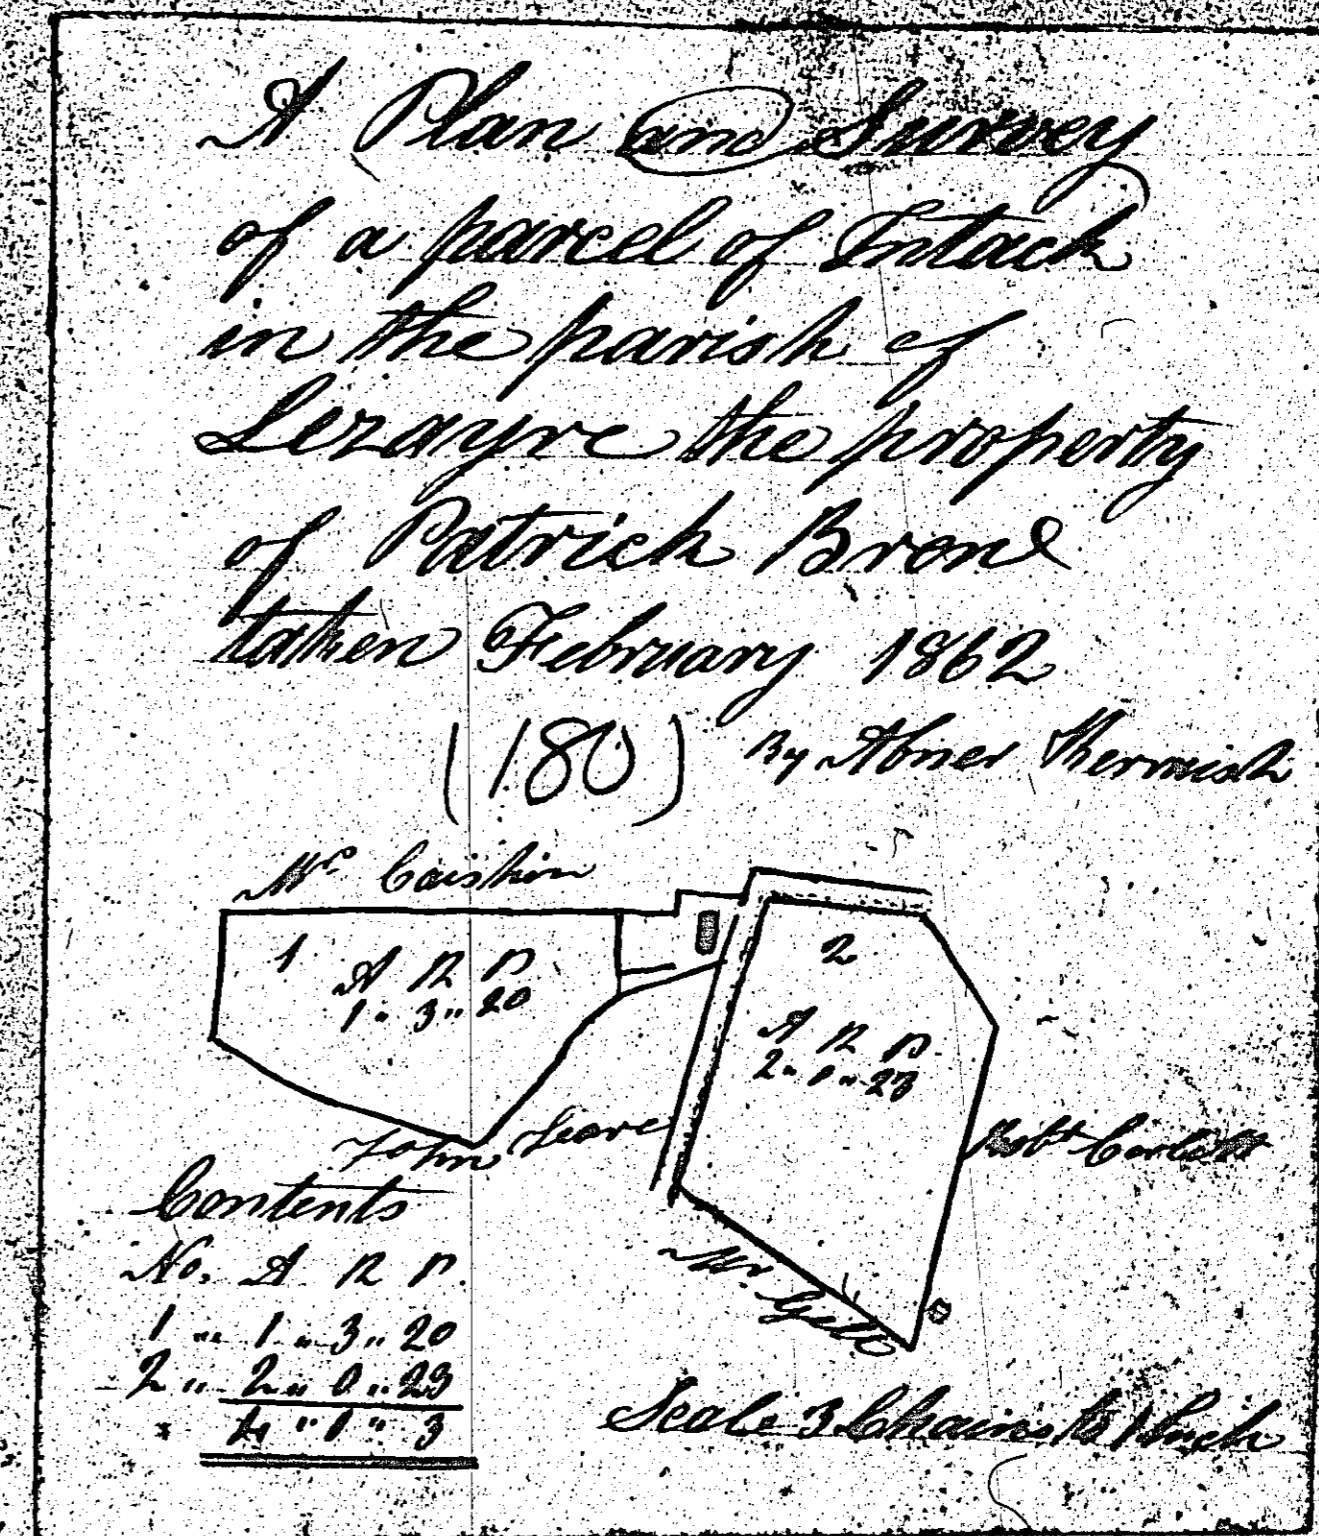 A Plan and Survey
of a parcel of Intack
in the parish of
Lezayre the property
of Patrick Brene
taken February 1862
(180) By Abner
Caishin
1
A R P
1 " 3 " 20
2
A R P
2 " 0 " 23
John
Robt Corlett
Mr. Gell
Contents
No. A R P
1 " 1 " 3 " 20
2 " 2 " 0 " 23
4 " 0 " 3
Scale 3 Chains to 1 Inch